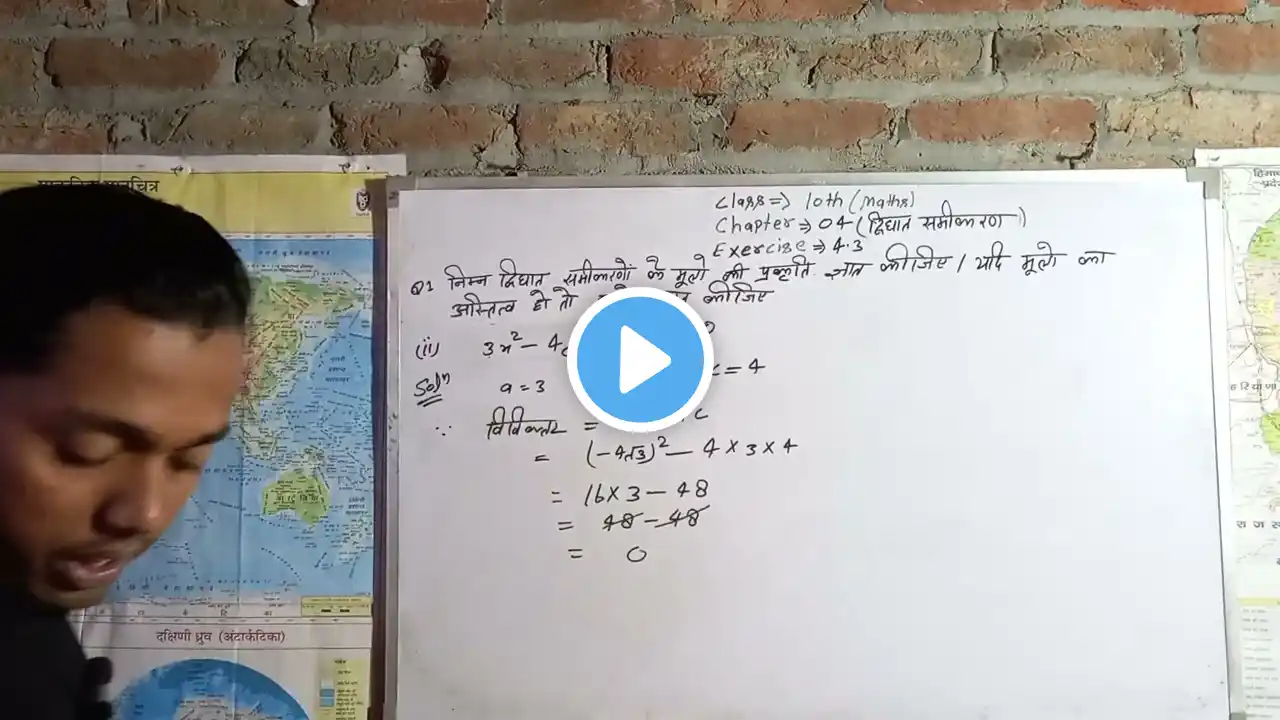 class => 10th (Maths)
Chapter => 04 (द्विघात समीकरण)
Exercise => 4.3
Q1 निम्न द्विघात समीकरणों के मूलो की प्रकृति ज्ञात कीजिए / यदि मूलो का
अस्तित्व हो तो कीजिए
(ii) 3x² - 4
Soln a = 3 c = 4
∴ विविक्तर =
= (-4√3)² - 4 × 3 × 4
= 16 × 3 - 48
= 48 - 48
= 0
दक्षिणी ध्रुव (अंटार्कटिका)